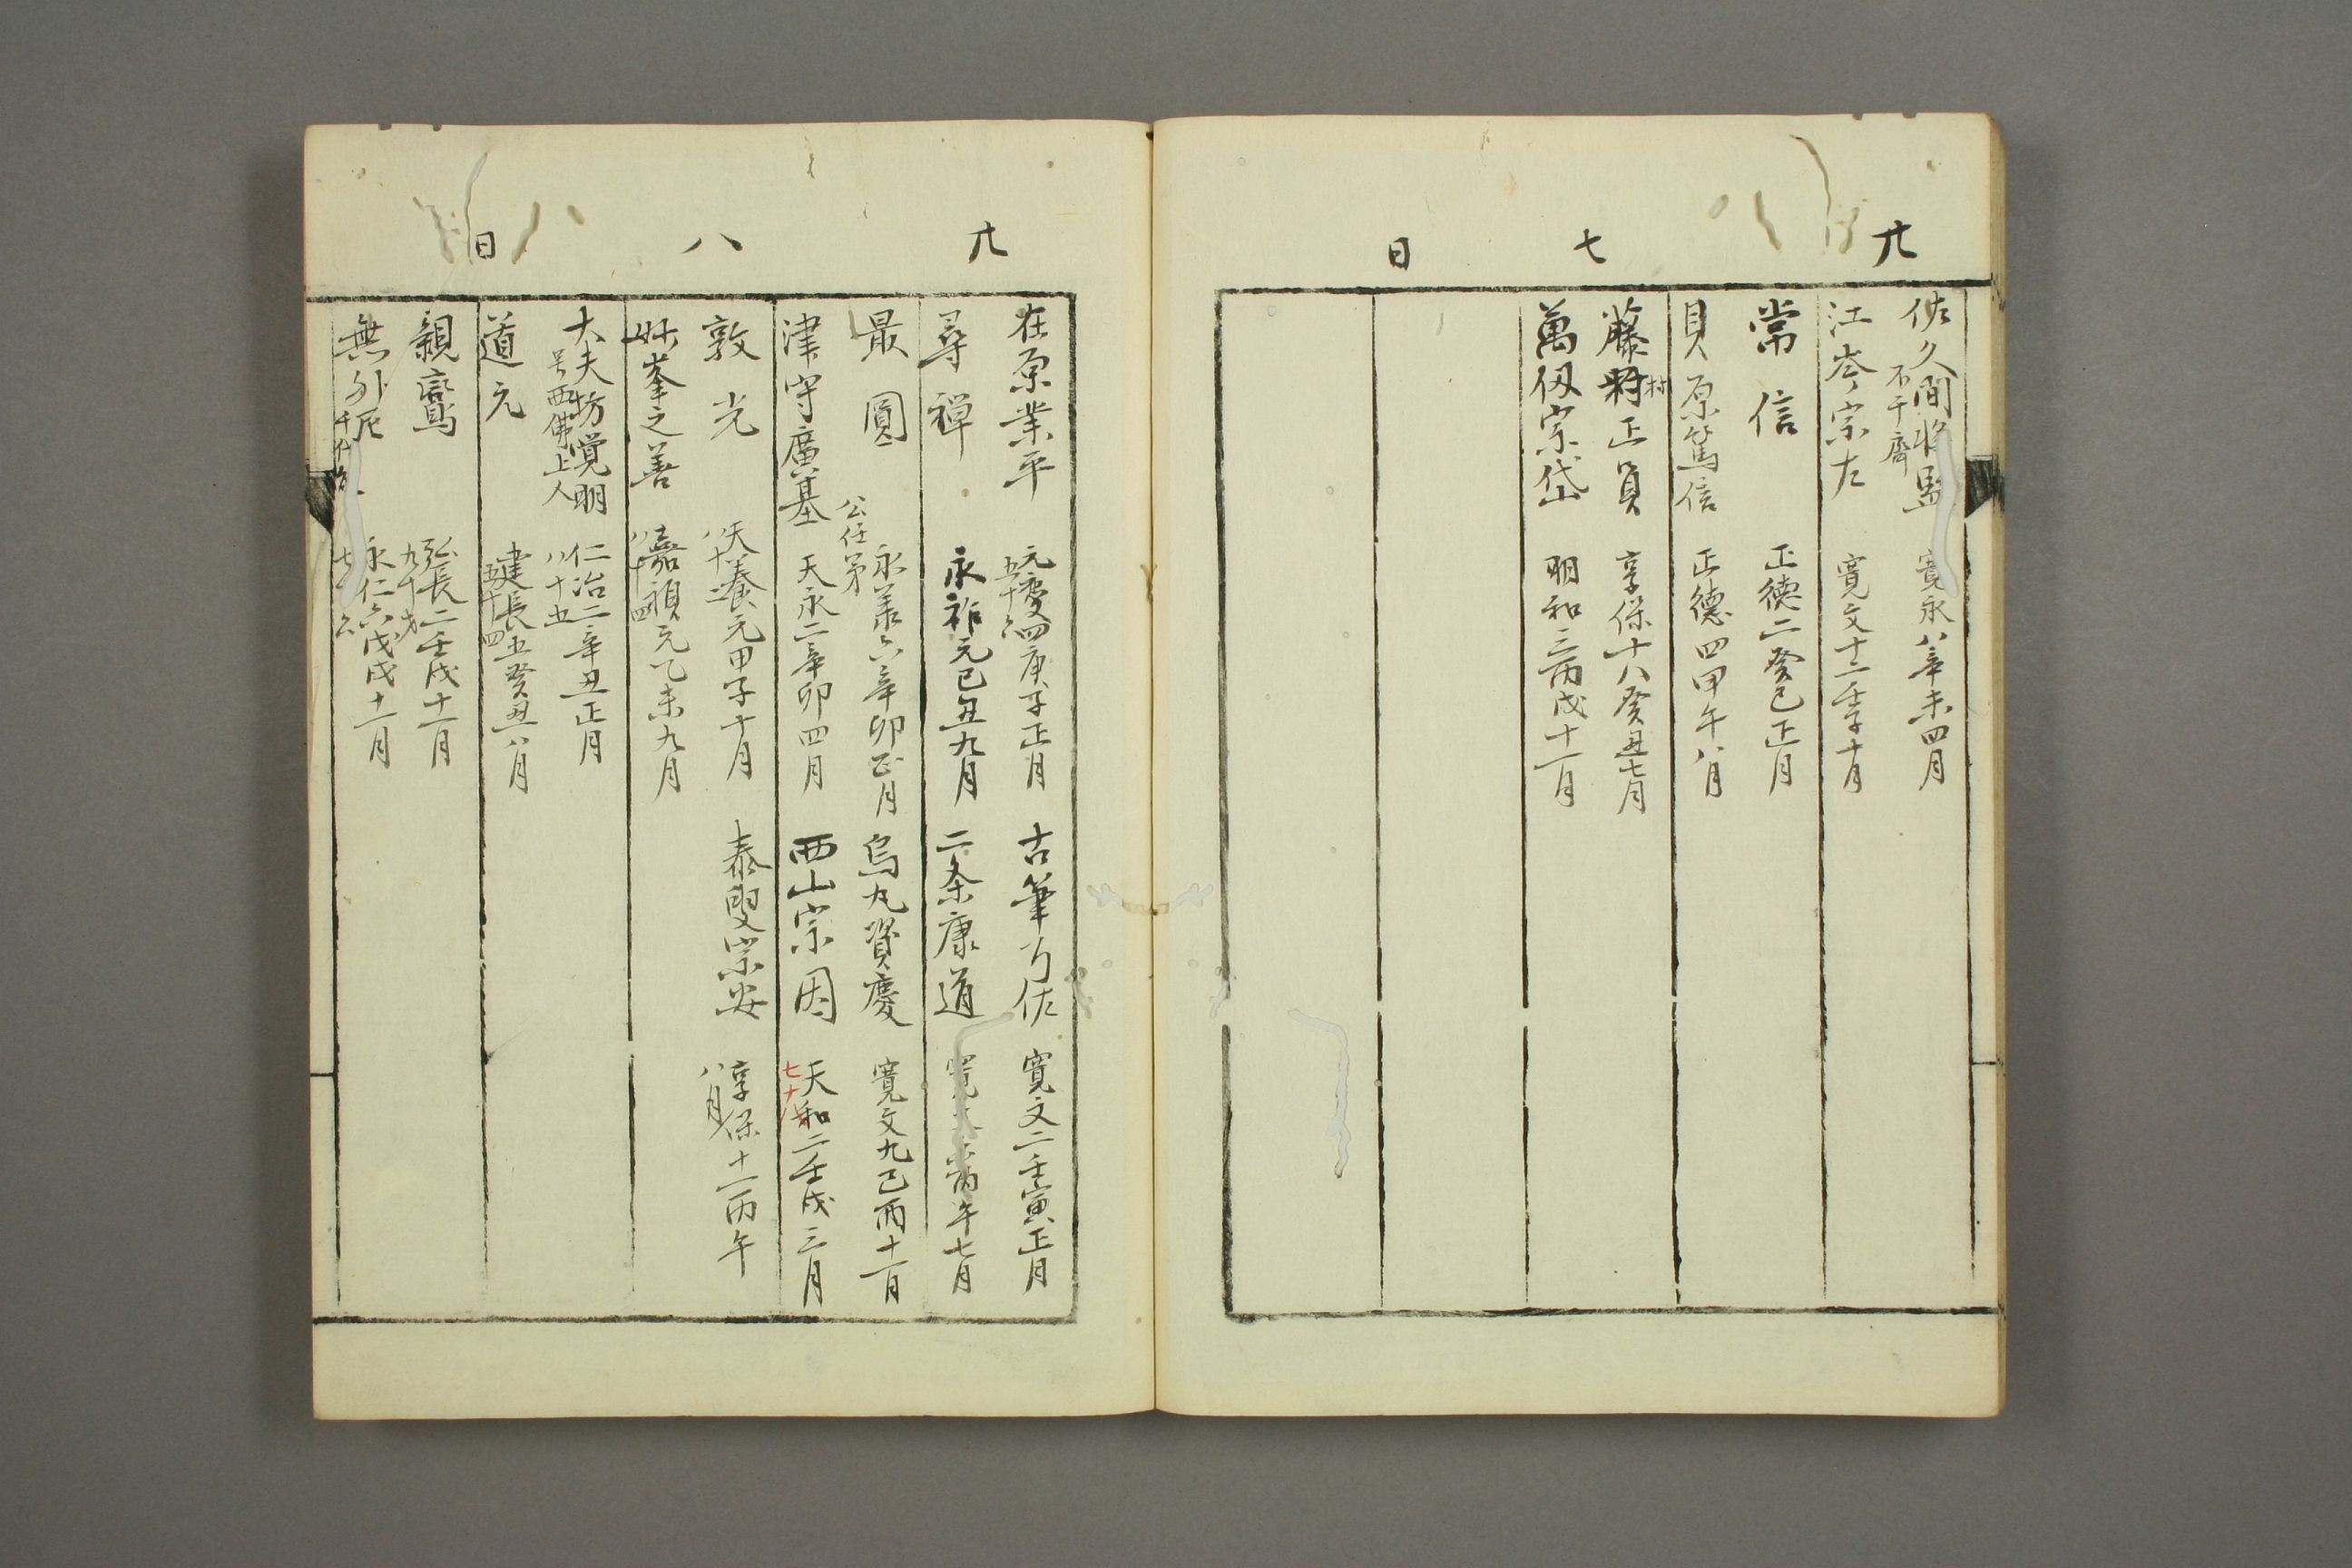 廿七日
佐久間将監 不干齋 寛永八辛未四月
江岑宗左 寛文十二壬子十月
常信 正徳二癸巳正月
貝原篤信 正徳四甲午八月
藤村正員 享保十八癸丑七月
萬仭宗岱 明和三丙戌十一月
廿八日
在原業平 元慶四庚子正月 五十六
古筆了佐 寛文二壬寅正月
尋禅 永祚元己丑九月
二条康道 寛文六丙午七月
最圓 公任弟 永羕六辛卯正月
烏丸資慶 寛文九己酉十一月
津守廣基 天永二辛卯四月
西山宗因 天和二壬戌三月 七十八
敦光 天養元甲子十月 八十二
泰叟宗安 享保十一丙午八月
妙峯之善 嘉禎元乙未九月 八十四
大夫坊覚明 号西佛上人 仁治二辛丑正月 八十五
道元 建長五癸丑八月 五十四
親鸞 弘長二壬戌十一月 九十才
無外尼 千代 永仁六戊戌十一月 七十六